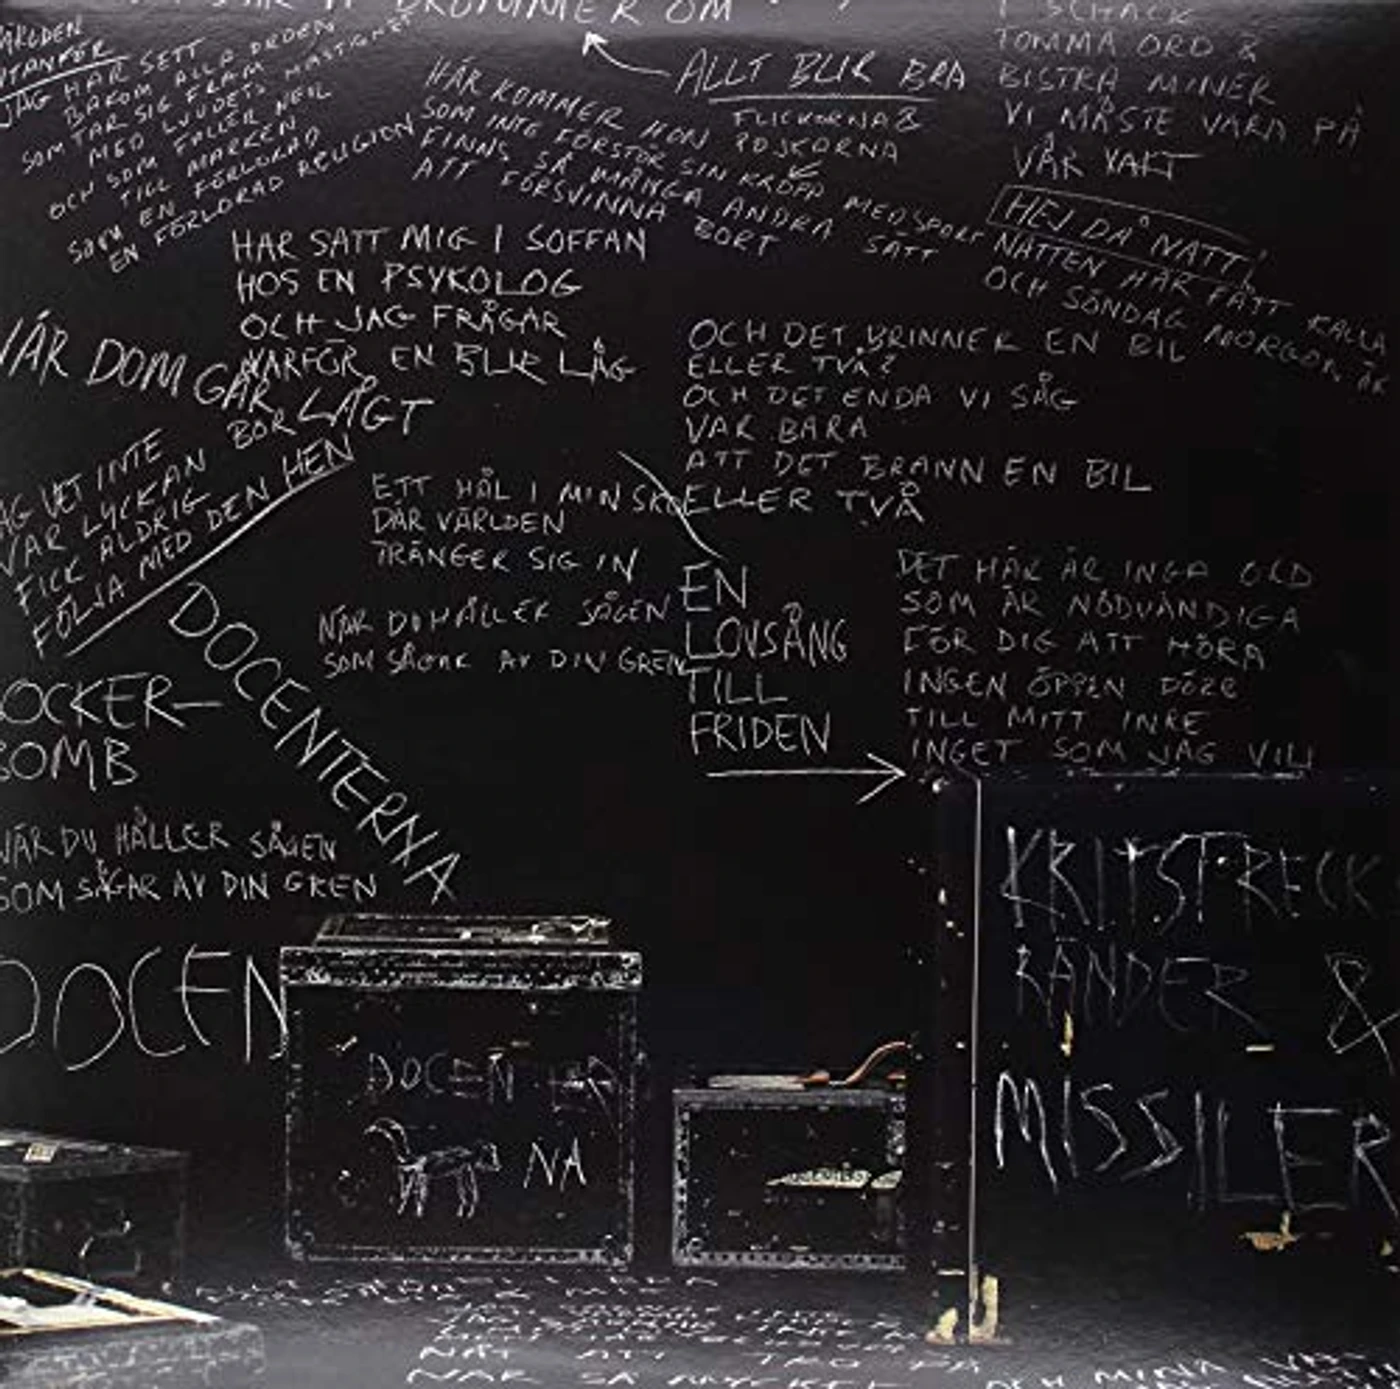 DRÖMMER OM
VÄRLDEN
UTANFÖR
JAG HAR SETT
BAKOM ALLA ORDEN
SOM TAR SIG FRAM
MED LJUDETS HASTIGHET
OCH SOM FALLER NER
TILL MARKEN
SOM EN FÖRLORAD
EN FÖRLORAD RELIGION
HÄR KOMMER HON
SOM INTE FÖRSTÖR SIN KROPP MED SPORT
FINNS SÅ MÅNGA ANDRA SÄTT
ATT FÖRSVINNA BORT
ALLT BLIR BRA
FLICKORNA &
POJKARNA
I SCHACK
TOMMA ORD &
BISTRA MINER
VI MÅSTE VARA PÅ
VÅR VAKT
HEJ DÅ NATT!
NATTEN HAR FÅTT KALLA
OCH SÖNDAG MORGON ÄR
HAR SATT MIG I SOFFAN
HOS EN PSYKOLOG
OCH JAG FRÅGAR
VARFÖR EN BLIR LÅG
NÄR DOM GÅR LÅGT
JAG VET INTE
VAR LYCKAN BOR
FICK ALDRIG
FÖLJA MED DEN HEM
OCH DET BRINNER EN BIL
ELLER TVÅ?
OCH DET ENDA VI SÅG
VAR BARA
ATT DET BRANN EN BIL
ELLER TVÅ
ETT HÅL I MIN SKO
DÄR VÄRLDEN
TRÄNGER SIG IN
NÄR DU HÅLLER SÅGEN
SOM SÅGAR AV DIN GREN
EN
LOVSÅNG
TILL
FRIDEN
DET HÄR ÄR INGA ORD
SOM ÄR NÖDVÄNDIGA
FÖR DIG ATT HÖRA
INGEN ÖPPEN DÖRR
TILL MITT INRE
INGET SOM JAG VILL
DOCENTERNA
SOCKER-
BOMB
NÄR DU HÅLLER SÅGEN
SOM SÅGAR AV DIN GREN
DOCEN
DOCENTER
NA
KRITSTRECK
RÄNDER &
MISSILER
NÄT ATT TRO PÅ
NÄR SÅ MYCKET
OCH MINA